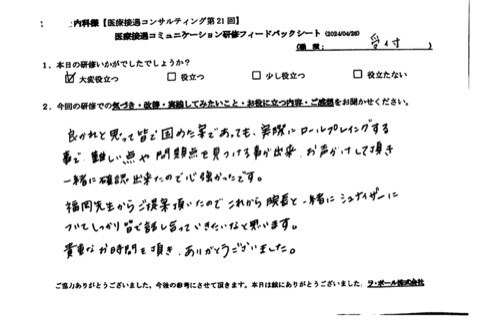 内科様【医療接遇コンサルティング第21回】
医療接遇コミュニケーション研修フィードバックシート (2024/04/26)
(職種: 受付)
1. 本日の研修いかがでしたでしょうか?
☑ 大変役立つ □ 役立つ □ 少し役立つ □ 役立たない
2. 今回の研修での気づき・改善・実践してみたいこと・お役に立つ内容・ご感想をお聞かせください。
良かれと思って皆で固めた案であっても、実際にロールプレイングする
事で、難しい点や問題点を見つける事が出来、お声がけして頂き
一緒に確認出来たので心強かったです。
福岡先生からご提案頂いたのでこれから院長と一緒にシュナイザーに
ついてしっかり皆で話し合っていきたいなと思います。
貴重なお時間を頂き、ありがとうございました。
ご協力ありがとうございました。今後の参考にさせて頂きます。本日は誠にありがとうございました。ラ・ポール株式会社